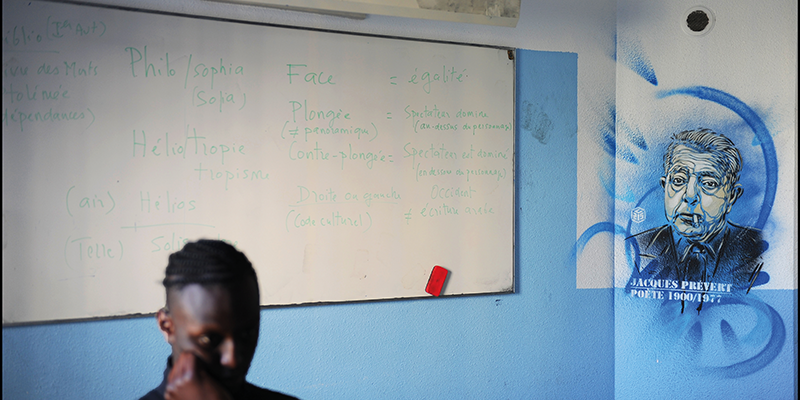 Biblio (Ier Ant)
des Morts
Ptolémée
dépendances)
Philo/sophia
(Sofia)
Hélio/tropie
tropisme
(air) Hélias
(Telle)
Face = égalité
Plongée = Spectateur domine
(≠ panoramique) (au-dessus du personnage)
Contre-plongée = Spectateur est dominé
(en dessous du personnage)
Droite ou gauche Occident
(Code culturel) ≠ écriture arabe
JACQUES PRÉVERT
POÈTE 1900/1977